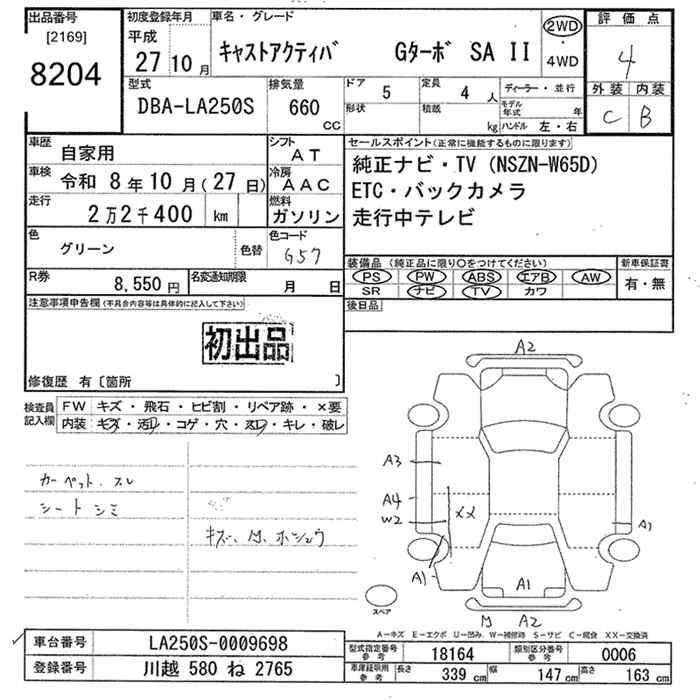 出品番号 初度登録年月 車名・グレード 評価点
[2169] 平成
8204 27 10月 キャストアクティバ Gターボ SA II 2WD・4WD 4
型式 排気量 ドア 定員 ディーラー・並行 外装 内装
DBA-LA250S 660 cc 5 4人 C B
形状 積載 kg モデル年式 年
ハンドル 左・右
車歴 自家用 シフト AT セールスポイント(正常に機能するものに限ります)
車検 令和 8年10月(27日) 冷房 AAC 純正ナビ・TV (NSZN-W65D)
走行 2万2千400 km 燃料 ガソリン ETC・バックカメラ
走行中テレビ
色 グリーン 色替 色コード G57
装備品 (純正品に限り○をつけてください) 新車保証書
PS PW ABS エアB AW 有・無
SR ナビ TV カワ
R券 8,550円 名変通知期限 月 日
後日品
注意事項申告欄(不具合内容等は具体的に記入して下さい)
初出品
修復歴 有〔箇所 〕
検査員記入欄 FW キズ・飛石・ヒビ割・リペア跡・×要
内装 キズ・汚レ・コゲ・穴・スレ・キレ・破レ
カーペット.スレ
シートシミ
キズ、M、ホシュウ
A2
A3
A4
W2
XX
A1
A1
A1
M A2
スペア
A-キズ E-エクボ U-凹み W-補修跡 S-サビ C-腐食 XX-交換済
車台番号 LA250S-0009698 型式指定番号 参考 18164 類別区分番号 参考 0006
登録番号 川越 580 ね 2765 車庫証明用 参考 長さ 339 cm 幅 147 cm 高さ 163 cm